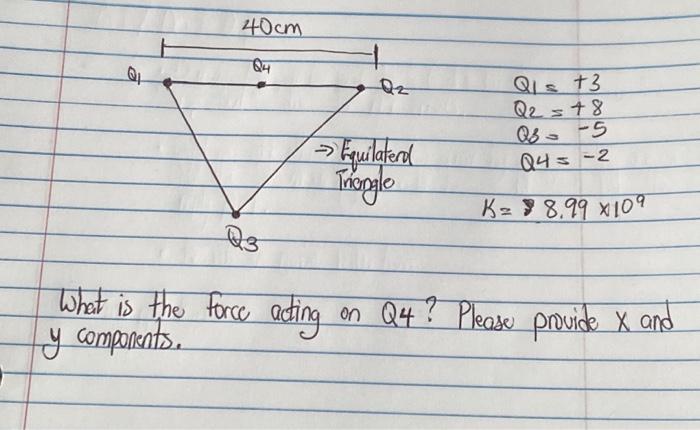 40cm
Q1
Q4
Q2
Q1 = +3
Q2 = +8
Q3 = -5
Q4 = -2
⇒ Equilateral
Triangle
K = 8.99 x10⁹
Q3
What is the force acting on Q4? Please provide x and
y components.